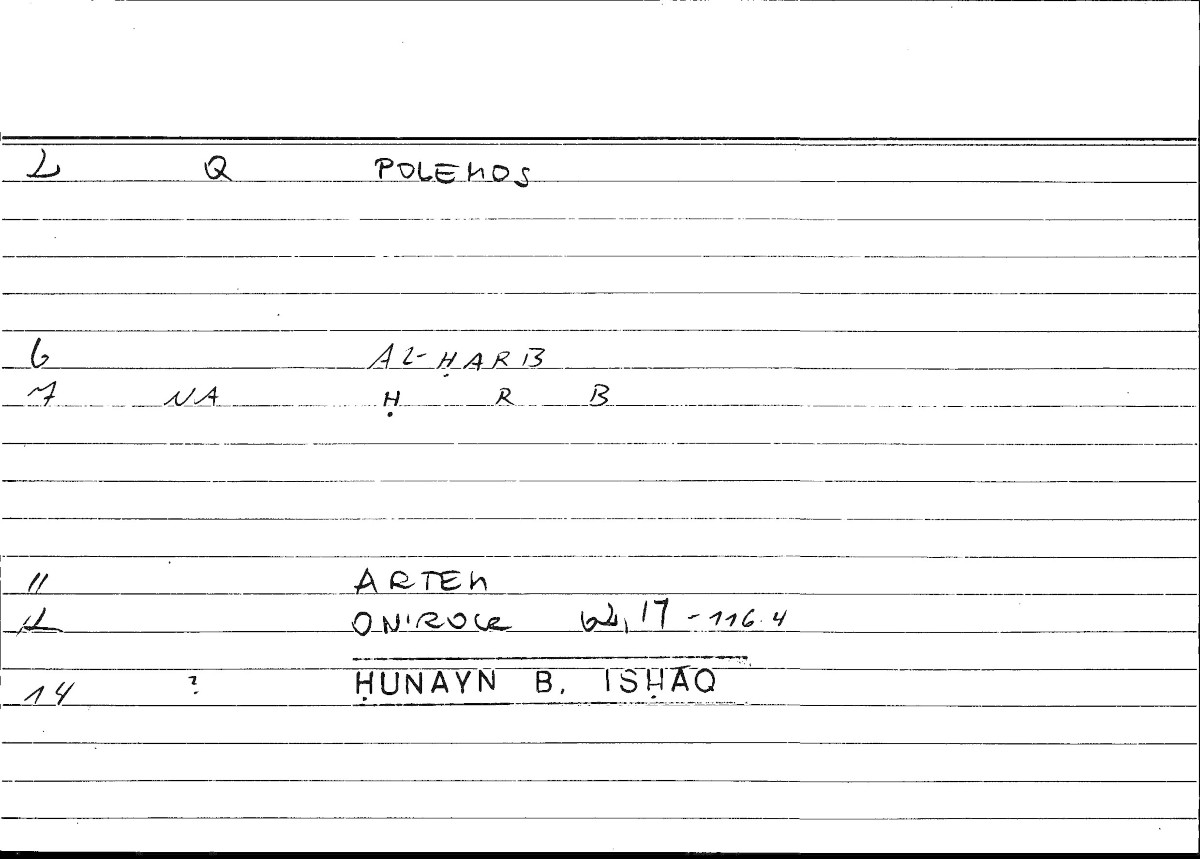 2 Q POLEMOS
6 AL-ḤARB
7 NA Ḥ R B
11 ARTEM
12 ONIROCR 62,17 - 116.4
14 ? ḤUNAYN B. ISḤĀQ